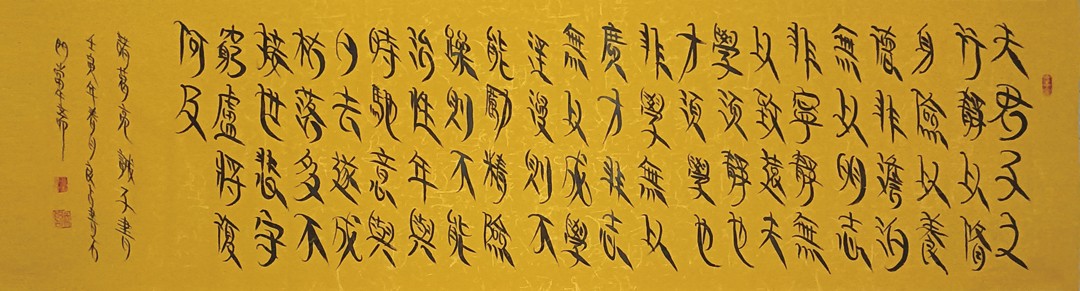 夫君子之
行靜以脩
身儉以養
德非澹泊
無以明志
非寧靜無
以致遠夫
學須靜也
才須學也
非學無以
廣才非志
無以成學
淫漫則不
能勵精險
躁則不能
治性年與
時馳意與
日去遂成
枯落多不
接世悲守
窮廬將復
何及
諸葛亮誡子書